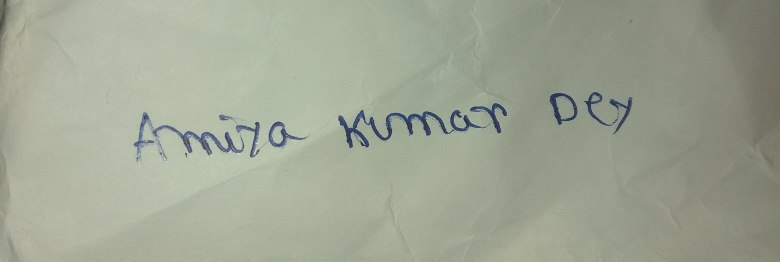 Amiya Kumar Dey